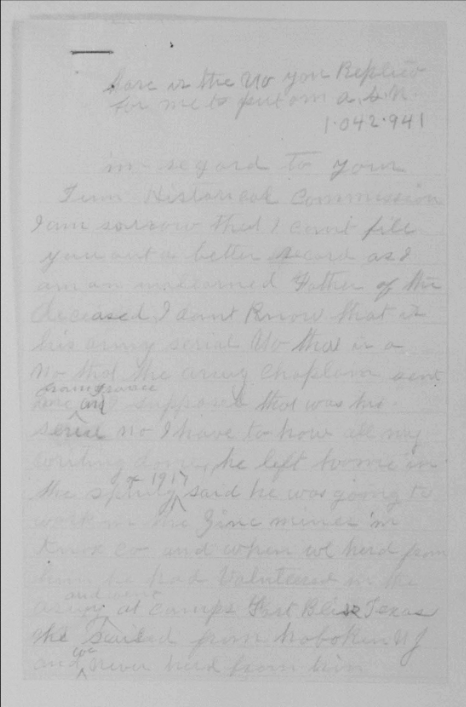 here is the No you Replied
for me to put on a. S. N.
1.042.941
in regard to your
Tenn Historical Commission
I am sorrow that I cant fill
you out a better Record as I
am an unlearned Father of the
deceased I dont Know that is
his army serial No that is a
No that the army Chaplain sent
me and I supposed that was his
serie No I have to have all my
writing done, he left home in
the spring of 1917 said he was going to
work in the Zinc mines in
Knox Co and when we herd from
him he had Volunteerd in the
army and went at camps Fort Bliss Texas
he sailed from hoboken N J
and we never herd from him